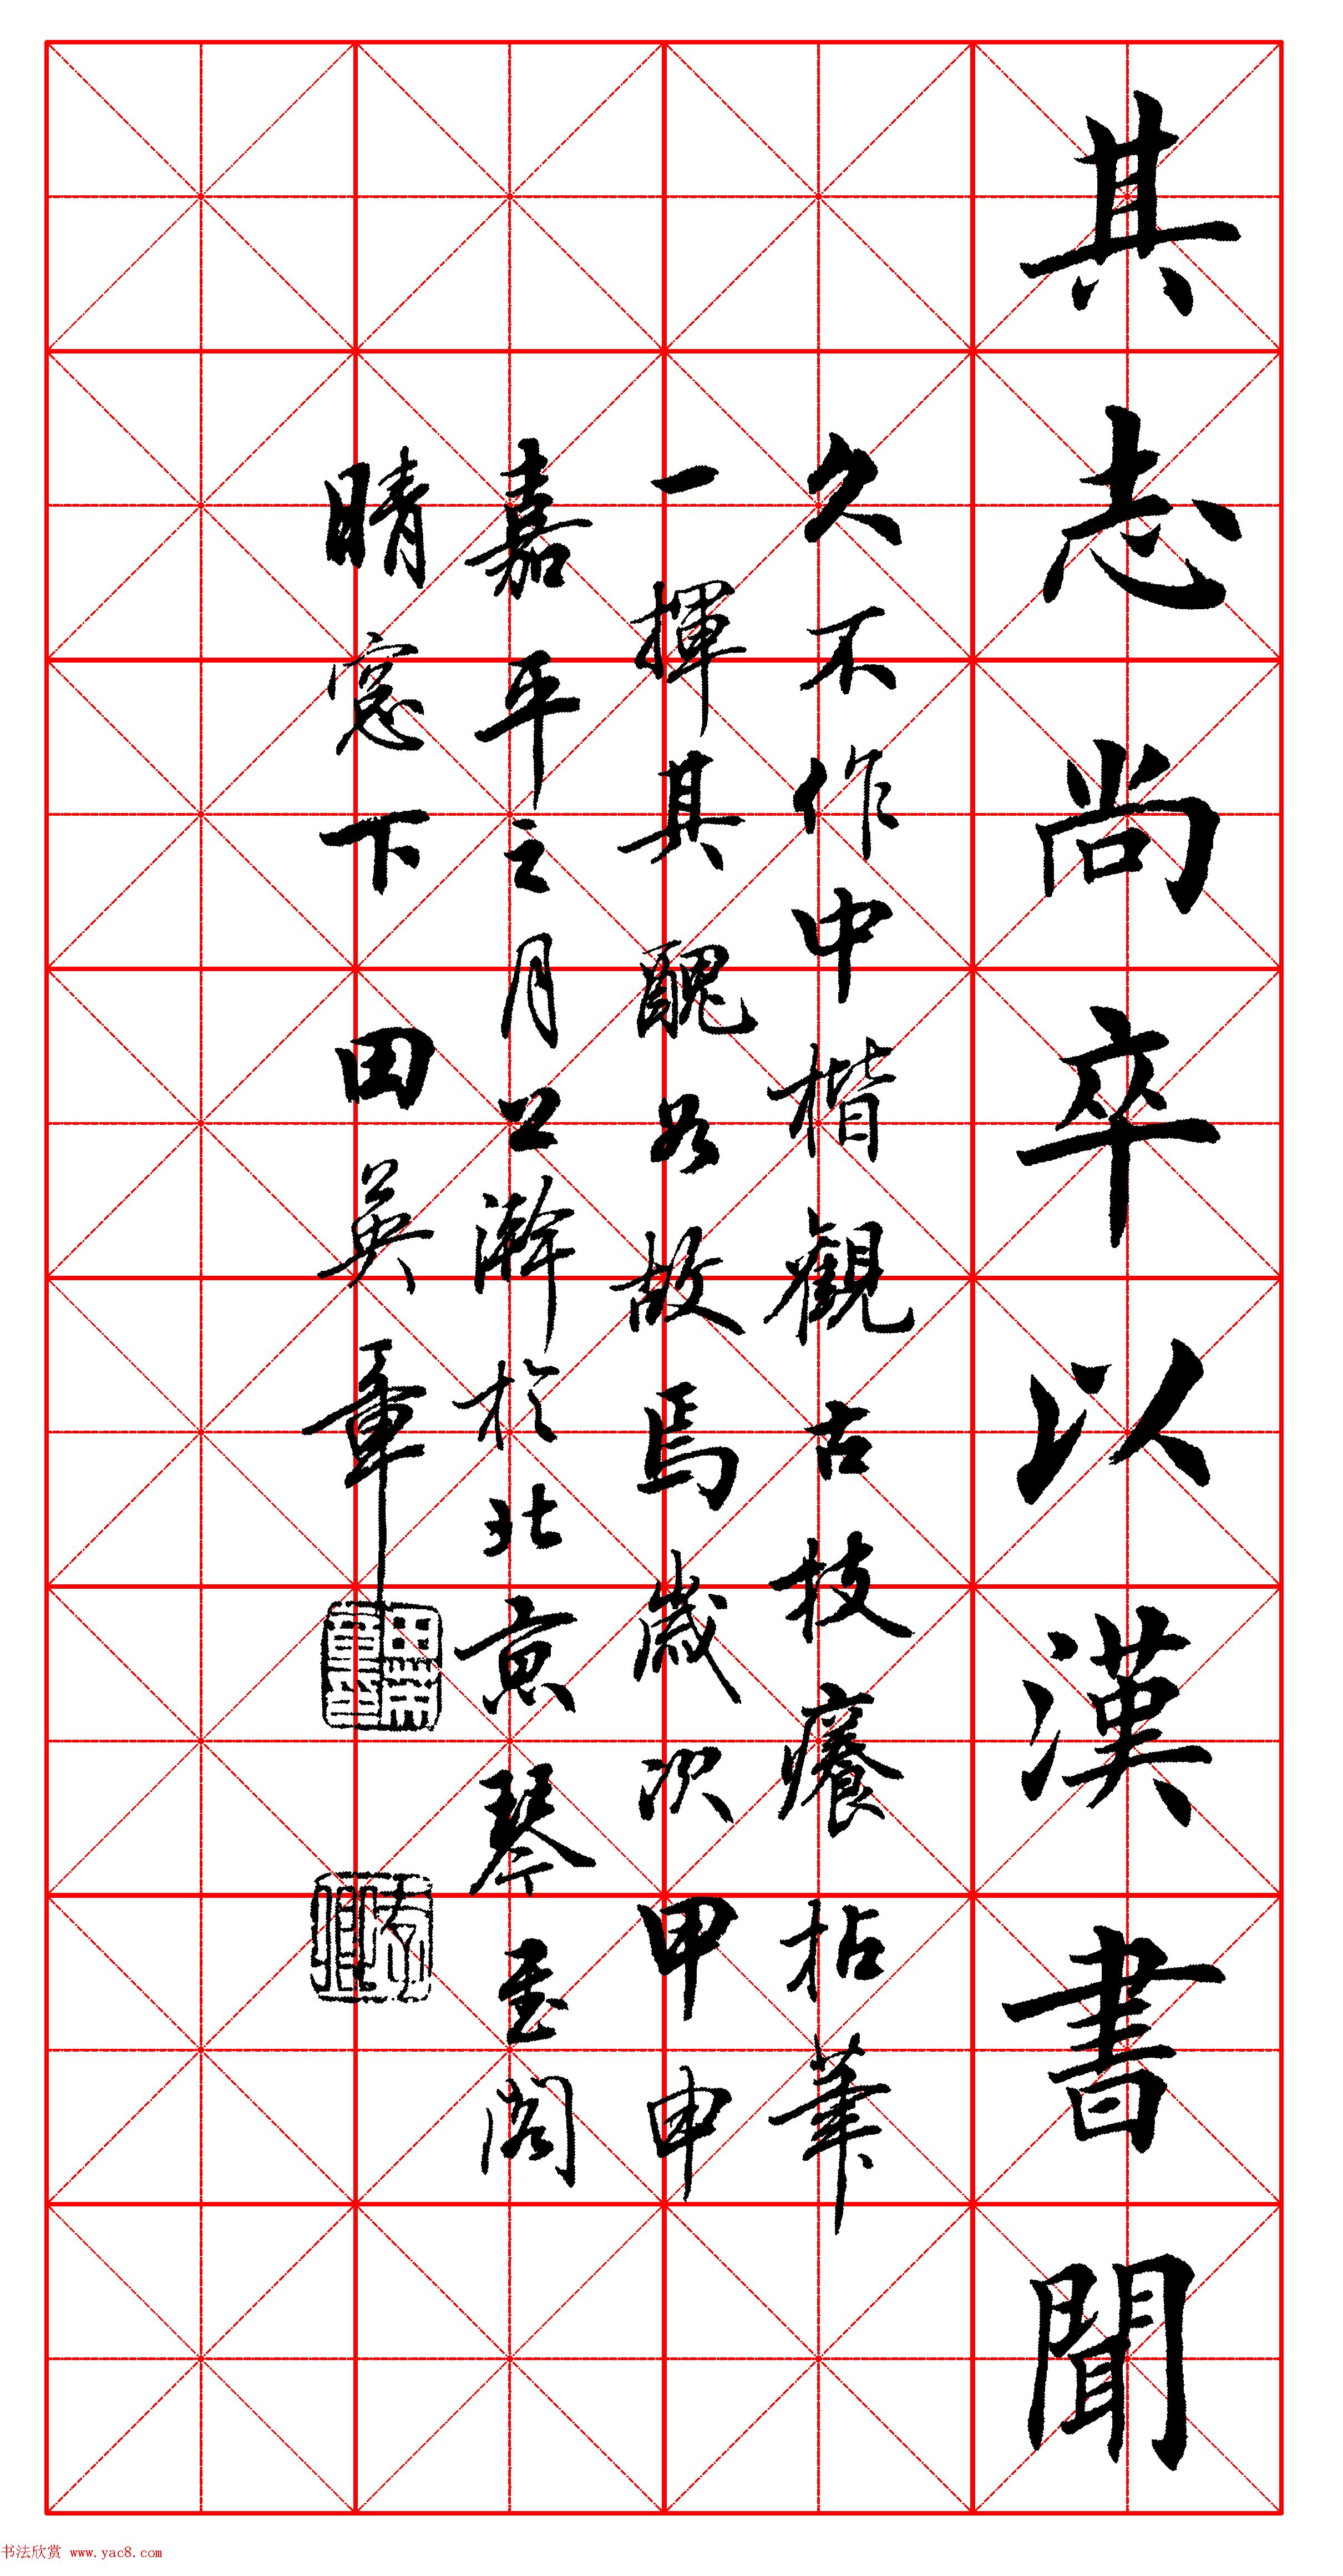 其志尚卒以漢書聞
久不作中楷觀古技癢拈筆
一揮其醜如故焉歲次甲申
嘉平之月上澣於北京琴畫閣
晴窓下田英章
書法欣賞 www.yac8.com